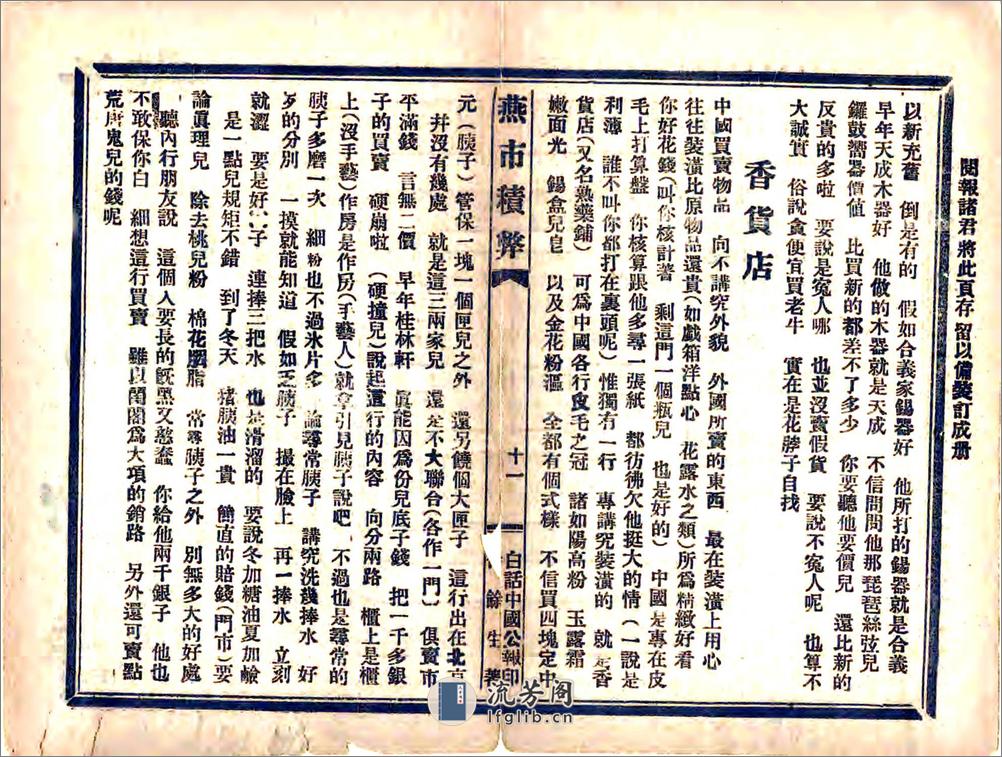 閱報諸君將此頁存留以備裝訂成册
以新充舊　倒是有的　假如合義家錫器好　他所打的錫器就是合義
早年天成木器好　他做的木器就是天成　不信問問他那琵琶絲弦兒
鑼鼓響器價值　比買新的都差不了多少　你要聽他要價兒　還比新的
反貴的多啦　要說是寃人哪　也並沒賣假貨　要說不寃人呢　也算不
大誠實　俗說貪便宜買老牛　實在是花脖子自找
香貨店
中國買賣物品　向不講究外貌　外國所賣的東西　最在裝潢上用心
往往裝潢比原物品還貴（如戲箱洋點心　花露水之類）所爲精緻好看
你好花錢（叫你核計著　剩這門一個瓶兒　也是好的）　中國是專在皮
毛上打算盤　你核算跟他多尋一張紙　都彷彿欠他挺大的情（一說是
利薄　誰不叫你都打在裏頭呢）惟獨有一行　專講究裝潢的　就是香
貨店（又名熟藥鋪）　可爲中國各行皮毛之冠　諸如陽高粉　玉露霜
嫩面光　錫盒兒皂　以及金花粉漚　全都有個式樣　不信買四塊定中
燕市積弊
十一
白話中國公報印
餘生著
元（胰子）管保一塊一個匣兒之外　還另饒個大匣子　這行出在北京
幷沒有幾處　就是這三兩家兒　還是不大聯合（各作一門）　俱賣市
平滿錢　言無二價　早年桂林軒　眞能因爲份兒底子錢　把一千多銀
子的買賣　硬崩啦　（硬撞兒）說起這行的內容　向分兩路　櫃上是櫃
上（沒手藝）作房是作房（手藝人）就拿引見胰子說吧　不過也是尋常的
胰子多磨一次　細粉也不過氷片多　論尋常胰子　講究洗幾捧水　好
歹的分別　一摸就能知道　假如乏胰子　撮在臉上　再一捧水　立刻
就澀　要是好　子　連捧三把水　也是滑溜的　要說冬加糖油夏加鹼
是一點兒規矩不錯　到了冬天　猪胰油一貴　簡直的賠錢（門市）要
論眞理兒　除去桃兒粉　棉花胭脂　常尋胰子之外　別無多大的好處
聽內行朋友說　這個人要長的旣黑又憨蠢　你給他兩千銀子　他也
不敢保你白　細想這行買賣　雖以閨閣爲大項的銷路　另外還可賣點
荒唐鬼兒的錢呢
流芳阁
lfglib.cn